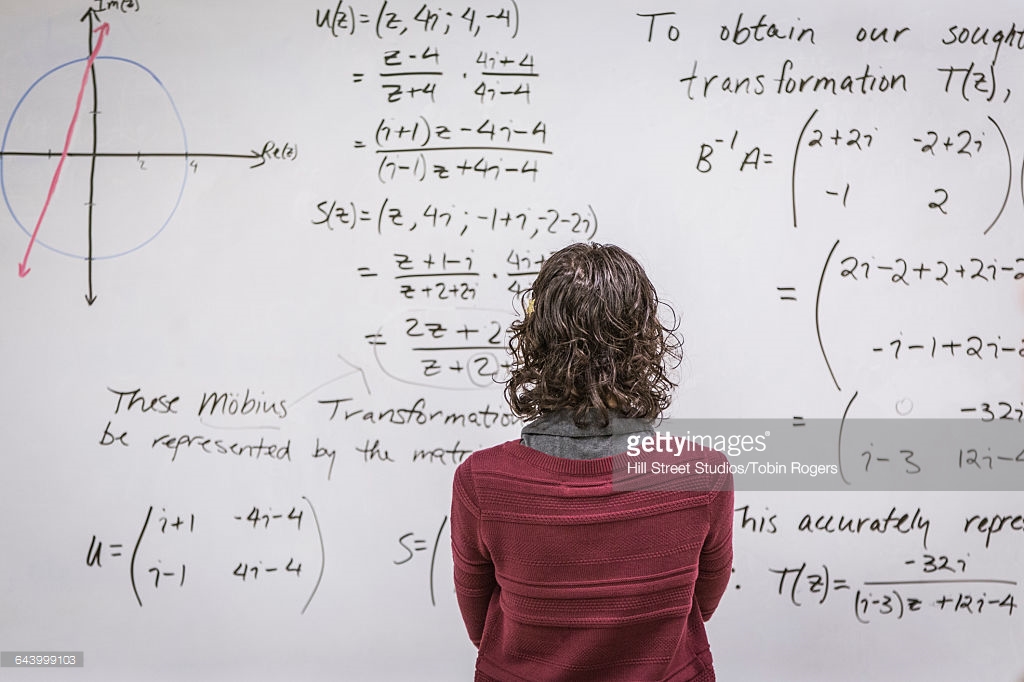 Im(z)
Re(z)
2
4
U(z) = (z, 4i; 4, -4)
= z-4/z+4 · 4i+4/4i-4
= (i+1)z-4i-4/(i-1)z+4i-4
S(z) = (z, 4i; -1+i, -2-2i)
= z+1-i/z+2+2i ·
= 2z+2
z+2+
These Möbius Transformation
be represented by the
U = ( i+1 -4i-4
i-1 4i-4 )
S = (
To obtain our sought
transformation T(z),
B⁻¹A = ( 2+2i -2+2i
-1 2 )
= ( 2i-2+2+2i-2
-i-1+2i-2
= ( 0 -32i
i-3 12i-4
his accurately repre
: T(z) = -32i/(i-3)z+12i-4
gettyimages®
Hill Street Studios/Tobin Rogers
643999103